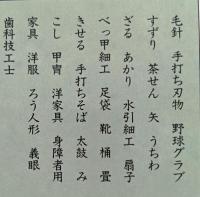 毛針 手打ち刃物 野球グラブ
すずり 茶せん 矢 うちわ
ざる あかり 水引細工 扇子
べっ甲細工 足袋 靴 桶 畳
きせる 手打ちそば 太鼓 み
こし 甲冑 洋家具 身障者用
家具 洋服 ろう人形 義眼
歯科技工士